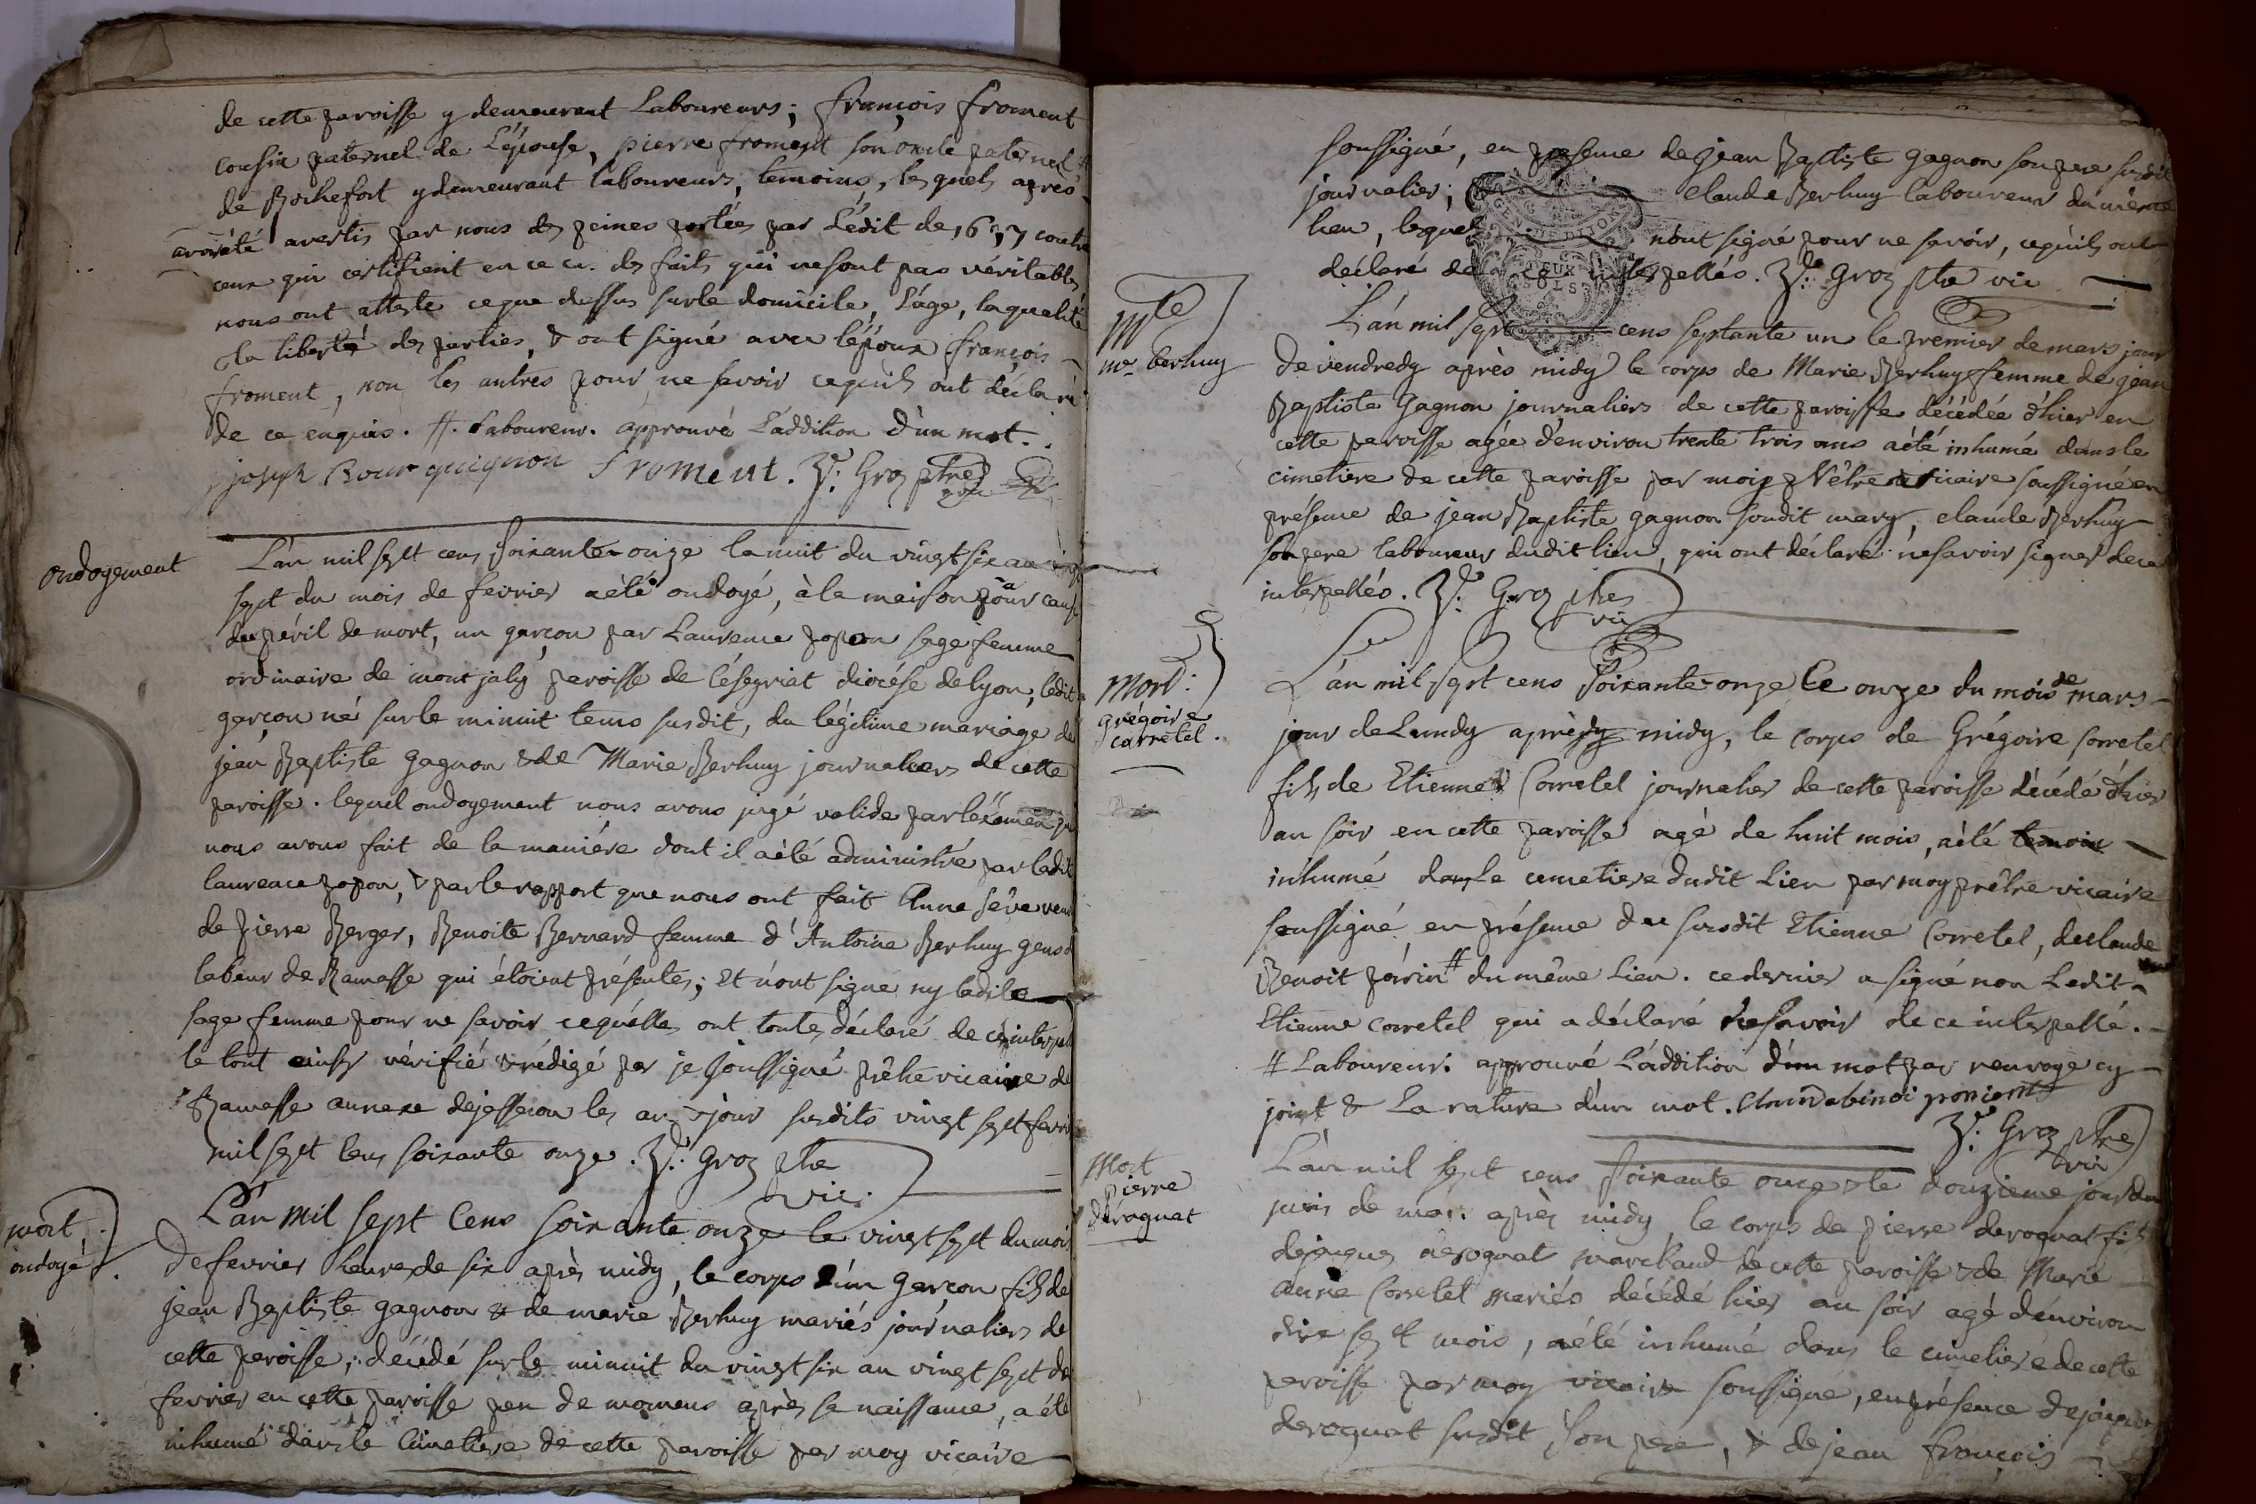 de cette paroisse y demeurant Laboureurs; françois froment
cousin paternel de L'épouse, pierre froment son oncle paternel #
de Rochefort y demeurant laboureurs, temoins, lesquels après
avoir été avertis par nous des peines portées par L'édit de 1697 contre
ceux qui certifient en ce cas des faits qui ne sont pas véritables
nous ont attesté ce que dessus sur le domicile, L'âge, la qualité
& la liberté des parties, & ont signé avec l'époux françois
froment, non les autres pour ne savoir ce qu'ils ont déclaré
de ce enquis. #. Laboureur. approuvé L'addition d'un mot.
joseph Bourquignon froment. Groz ptre
ondoyement
L'an mil sept cens soixante-onze la nuit du vingt six au vingt
sept du mois de fevrier a été ondoyé, à la maison pour cause
du péril de mort, un garçon par Laurence popon sage femme
ordinaire de mont jaly paroisse de Céseyriat diocése de lyon, ledit
garçon né sur le minuit tems susdit, du légitime mariage de
jean Baptiste gagnon & de Marie Berhuy journaliers de cette
paroisse. lequel ondoyement nous avons jugé valide par l'examen que
nous avons fait de la maniére dont il a été administré par ladite
laurence popon, & par le rapport que nous ont fait Anne séve veuve
de Pierre Berger, Benoite Bernard femme d'Antoine Berhuy gens de
labeur de Ramasse qui étoient présentes; Et n'ont signé ny ladite
sage femme pour ne savoir ce qu'elles ont toutes déclaré de ce interpel
le tout ainsy vérifié & rédigé par je soussigné prêtre vicaire de
Ramasse annexe de jasseron les an & jour susdits vingt sept fevrier
mil sept cens soixante onze. Groz ptre
vic.
mort
ondoyé
L'an mil sept Cens soixante onze le vingt sept du mois
de fevrier heure de six après midy, le corps d'un garçon fils de
jean Baptiste gagnon & de marie Berhuy mariés journaliers de
cette paroisse; décédé sur le minuit du vingt six au vingt sept de
fevrier en cette paroisse peu de momens après sa naissance, a été
inhumé dans le Cimetiere de cette paroisse par moy vicaire
soussigné, en presence de jean Baptiste gagnon son pere susdit
journalier; claude Berhuy laboureur du même
lieu, lesquels n'ont signé pour ne savoir, ce qu'ils ont
déclaré de ce interpellés. Groz ptre vic
DEUX SOLS
mte
me berhuy
L'an mil sept cens septante un le premier de mars jour
de vendredy après midy le corps de Marie Berhuy femme de jean
Baptiste Gagnon journaliers de cette paroisse décédée d'hier en
cette paroisse agée d'environ trente trois ans a été inhumé dans le
cimetiere de cette paroisse par moy prêtre vicaire soussigné en
présence de jean Baptiste gagnon sondit mary, claude Berhuy
son pere laboureur dudit lieu, qui ont déclaré ne savoir signer de ce
interpellés. Groz ptre
vic
mort:
grégoire
carretel.
L'an mil sept cens soixante-onze le onze du mois de mars
jour de Lundy après midy, le corps de Grégoire Corretel
fils de Etienne Corretel journalier de cette paroisse décédé d'hier
au soir en cette paroisse agé de huit mois, a été
inhumé dans le cimetiere dudit Lieu par moy prêtre vicaire
soussigné en présence du susdit Etienne Corretel, de claude
Benoit # du même Lieu. ce dernier a signé non Ledit
Etienne corretel qui a déclaré ne savoir de ce interpellé.
# Laboureur. approuvé L'addition d'un mot par renvoye cy
joint & La rature d'un mot.
Groz ptre
vic
Mort
pierre
derognat
L'an mil sept cens soixante onze & le douzieme jour du
mois de mars après midy, le corps de pierre derognat fils
de jaques derognat marchand de cette paroisse & de Marie
anne Corretel mariés décédé hier au soir agé d'environ
dix sept mois, a été inhumé dans le cimetiere de cette
paroisse par moy vicaire soussigné, en présence de jaques
derognat susdit son pere, & de jean françois